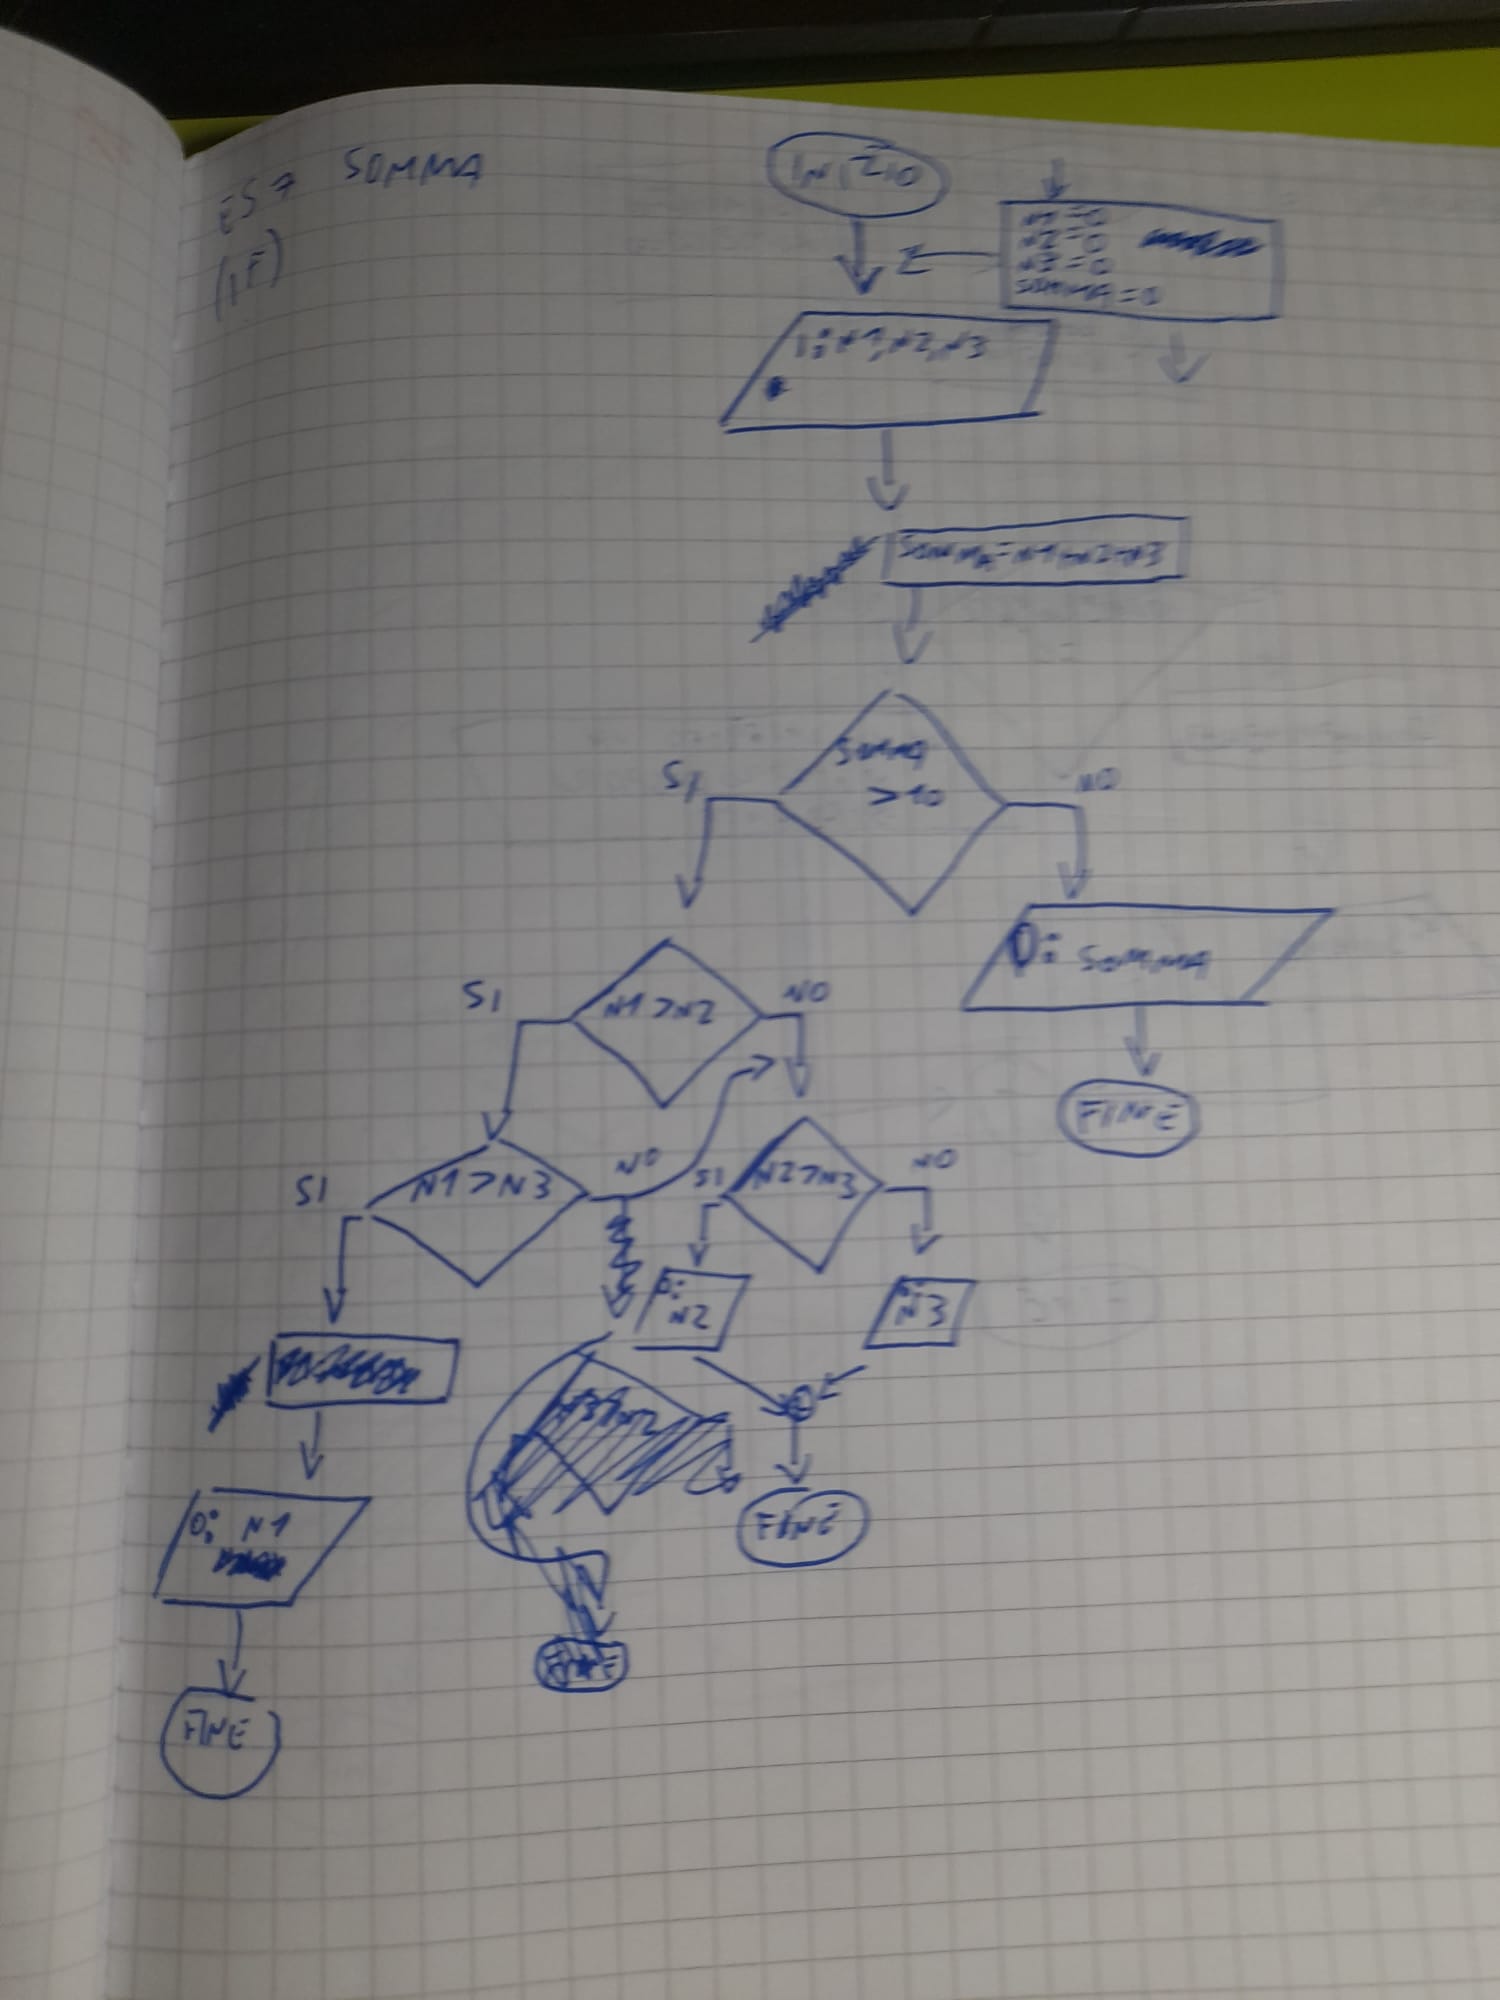 ES 7 SOMMA
(IF)
INIZIO
N1=0
N2=0
N3=0
SOMMA=0
I: N1, N2, N3
SOMMA=N1+N2+N3
SOMMA
>10
SI
NO
O: SOMMA
FINE
N1>N2
SI
NO
N1>N3
SI
NO
N2>N3
SI
NO
O:
N2
O:
N3
FINE
O: N1
FINE